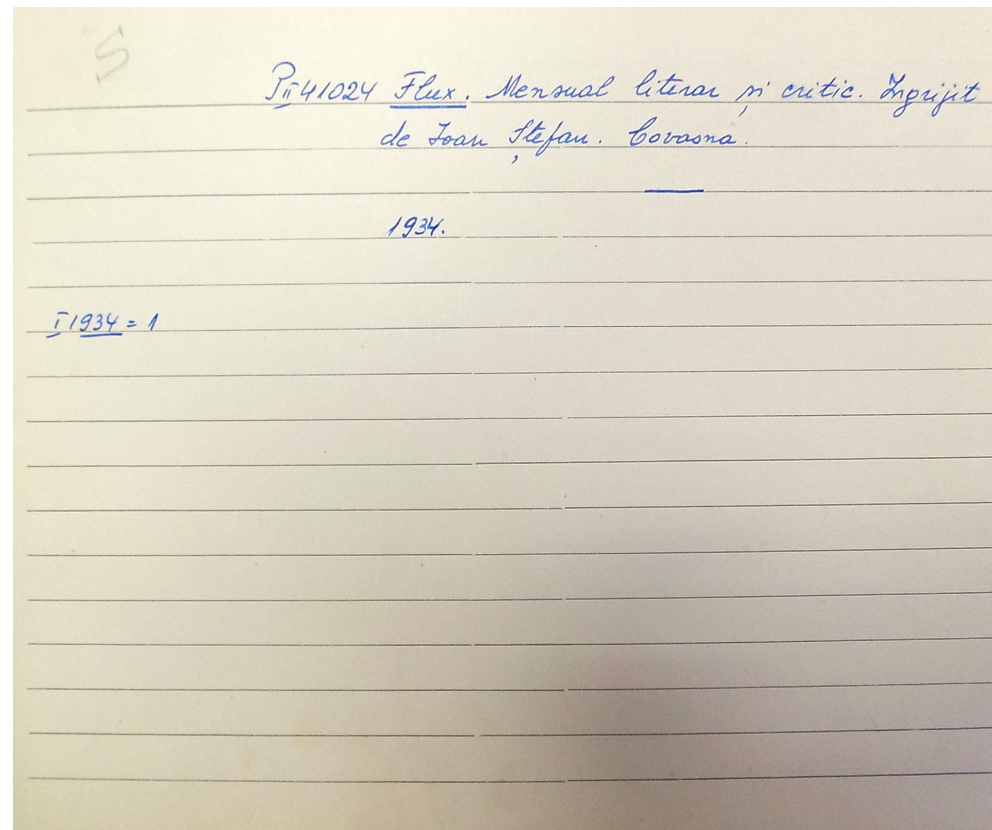 S
PII 41024 Flux. Mensual literar și critic. Îngrijit
de Ioan Ștefan. Covasna.
1934.
I 1934 = 1